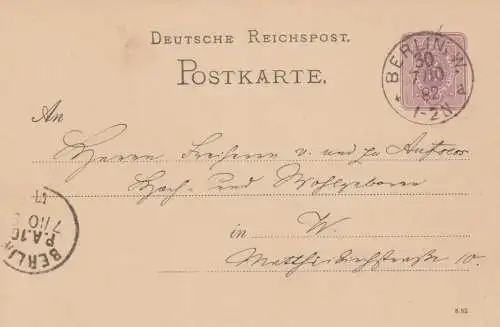 DEUTSCHE REICHSPOST.
POSTKARTE.
BERLIN, W.
30
7/10
82
* a
1-2N.
An
Herrn Freiherrn v. und zu Aufsess
Hoch- und Wohlgeboren
in W.
Matthäikirchstraße 10.
BERLIN
P.A.10
7/10
8.82